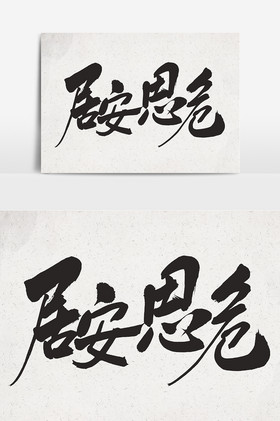 居安思危
居安思危